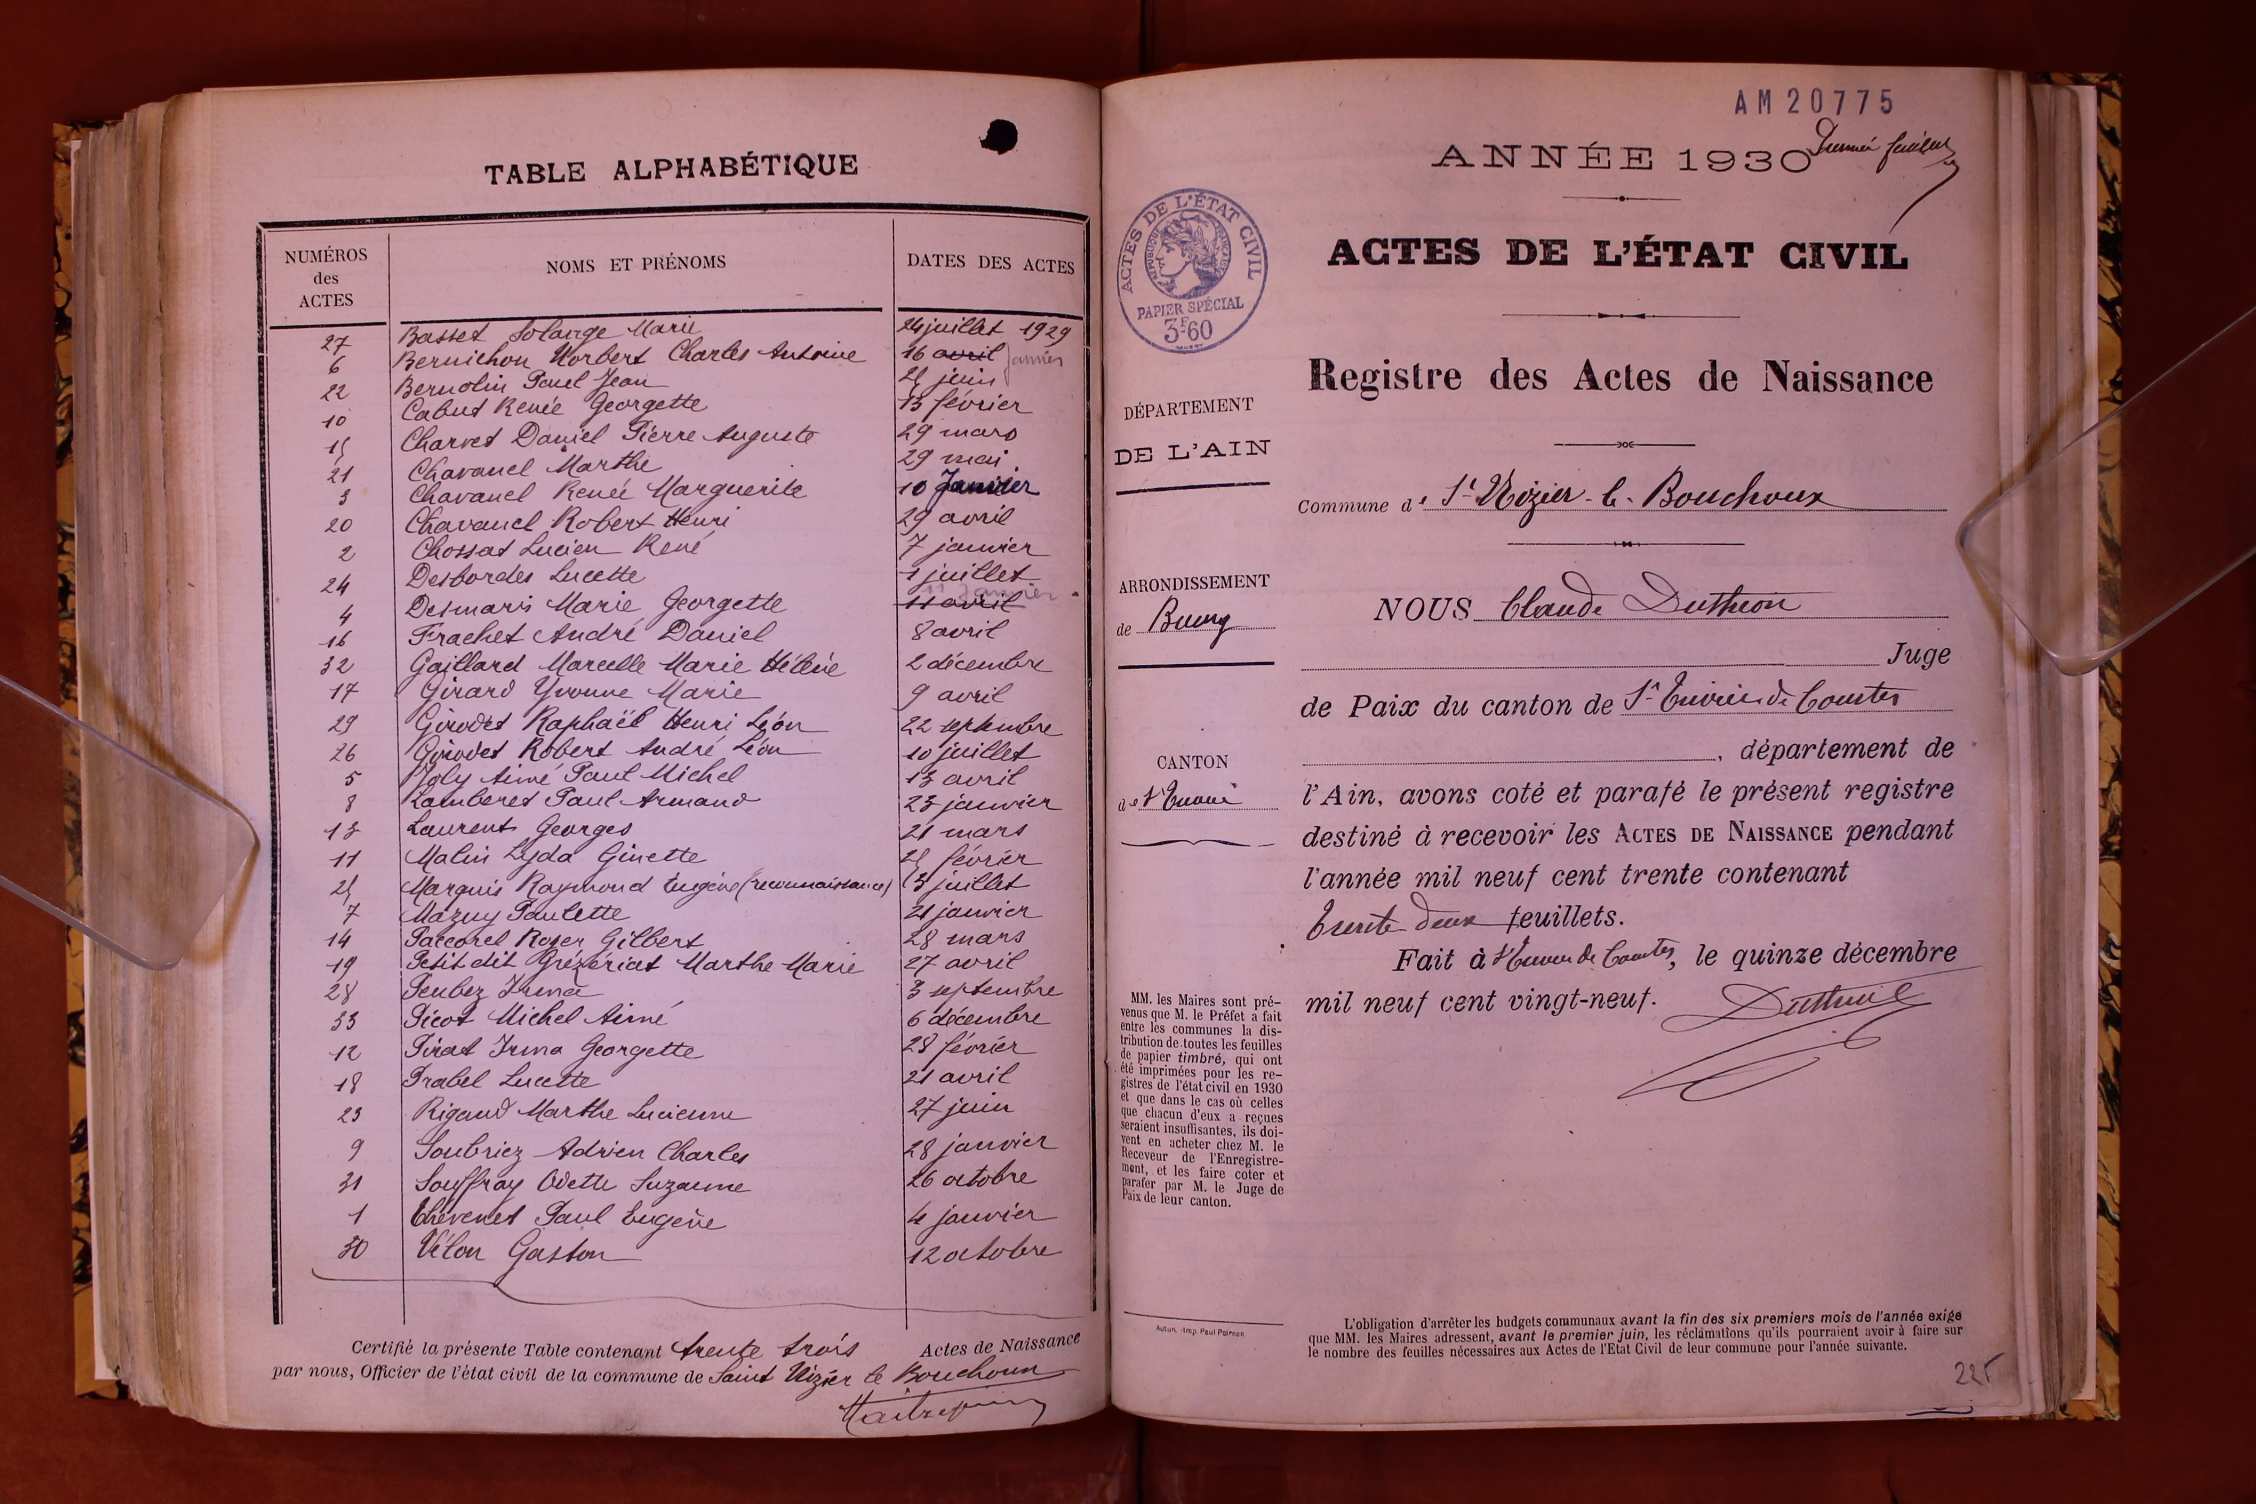 TABLE ALPHABÉTIQUE
NUMÉROS des ACTES NOMS ET PRÉNOMS DATES DES ACTES
27 Basset Solange Marie 24 juillet 1929
6 Bernichon Norbert Charles Antoine 16 avril janvier
22 Bernolin Paul Jean 25 juin
10 Cabut Renée Georgette 13 février
15 Charvet Daniel Pierre Auguste 29 mars
21 Chavanel Marthe 29 mai
3 Chavanel Renée Marguerite 10 Janvier
20 Chavanel Robert Henri 29 avril
2 Chossat Lucien René 7 janvier
24 Desbordes Lucette 1 juillet
4 Desmaris Marie Georgette 11 avril 11 janvier
16 Frachet André Daniel 8 avril
32 Gaillard Marcelle Marie Hélène 2 décembre
17 Girard Yvonne Marie 9 avril
29 Girodet Raphaël Henri Léon 22 septembre
26 Girodet Robert André Léon 10 juillet
5 Joly Aimé Paul Michel 13 avril
8 Lamberet Paul Armand 23 janvier
13 Laurent Georges 21 mars
11 Malin Lyda Ginette 25 février
25 Marquis Raymond Eugène (reconnaissance) 3 juillet
7 Mazuy Paulette 21 janvier
14 Paccorel Roger Gilbert 28 mars
19 Petit dit Grézériat Marthe Marie 27 avril
28 Peubez Irma 3 septembre
33 Picot Michel Aimé 6 décembre
12 Pirat Irma Georgette 28 février
18 Prabel Lucette 21 avril
23 Rigaud Marthe Lucienne 27 juin
9 Soubriez Adrien Charles 28 janvier
31 Souffray Odette Suzanne 26 octobre
1 Thévenet Paul Eugène 4 janvier
30 Vélon Gaston 12 octobre
Certifié la présente Table contenant trente trois Actes de Naissance
par nous, Officier de l'état civil de la commune de Saint Nizier le Bouchoux
AM 20775
ANNÉE 1930
Premier feuillet
ACTES DE L'ÉTAT CIVIL
ACTES DE L'ÉTAT CIVIL
RÉPUBLIQUE FRANÇAISE
PAPIER SPÉCIAL
3F.60
Registre des Actes de Naissance
DÉPARTEMENT
DE L'AIN
Commune de St Nizier-le-Bouchoux
ARRONDISSEMENT
de Bourg
NOUS Claude Dutheon
Juge
de Paix du canton de St Trivier de Courtes
, département de
CANTON
de St Trivier
l'Ain, avons coté et parafé le présent registre
destiné à recevoir les ACTES DE NAISSANCE pendant
l'année mil neuf cent trente contenant
trente deux feuillets.
Fait à St Trivier de Courtes, le quinze décembre
mil neuf cent vingt-neuf.
MM. les Maires sont pré-
venus que M. le Préfet a fait
entre les communes la dis-
tribution de toutes les feuilles
de papier timbré, qui ont
été imprimées pour les re-
gistres de l'état civil en 1930
et que dans le cas où celles
que chacun d'eux a reçues
seraient insuffisantes, ils doi-
vent en acheter chez M. le
Receveur de l'Enregistre-
ment, et les faire coter et
parafer par M. le Juge de
Paix de leur canton.
L'obligation d'arrêter les budgets communaux avant la fin des six premiers mois de l'année exige
que MM. les Maires adressent, avant le premier juin, les réclamations qu'ils pourraient avoir à faire sur
le nombre des feuilles nécessaires aux Actes de l'Etat Civil de leur commune pour l'année suivante.
225